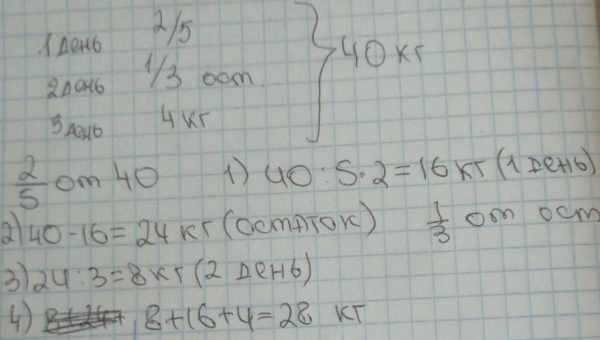 1 день 2/5
2 день 1/3 ост.
3 день 4 кг
} 40 кг
2/5 от 40 1) 40 : 5 · 2 = 16 кг (1 день)
2) 40 - 16 = 24 кг (остаток) 1/3 от ост
3) 24 : 3 = 8 кг (2 день)
4) 8 + 16 + 4 = 28 кг